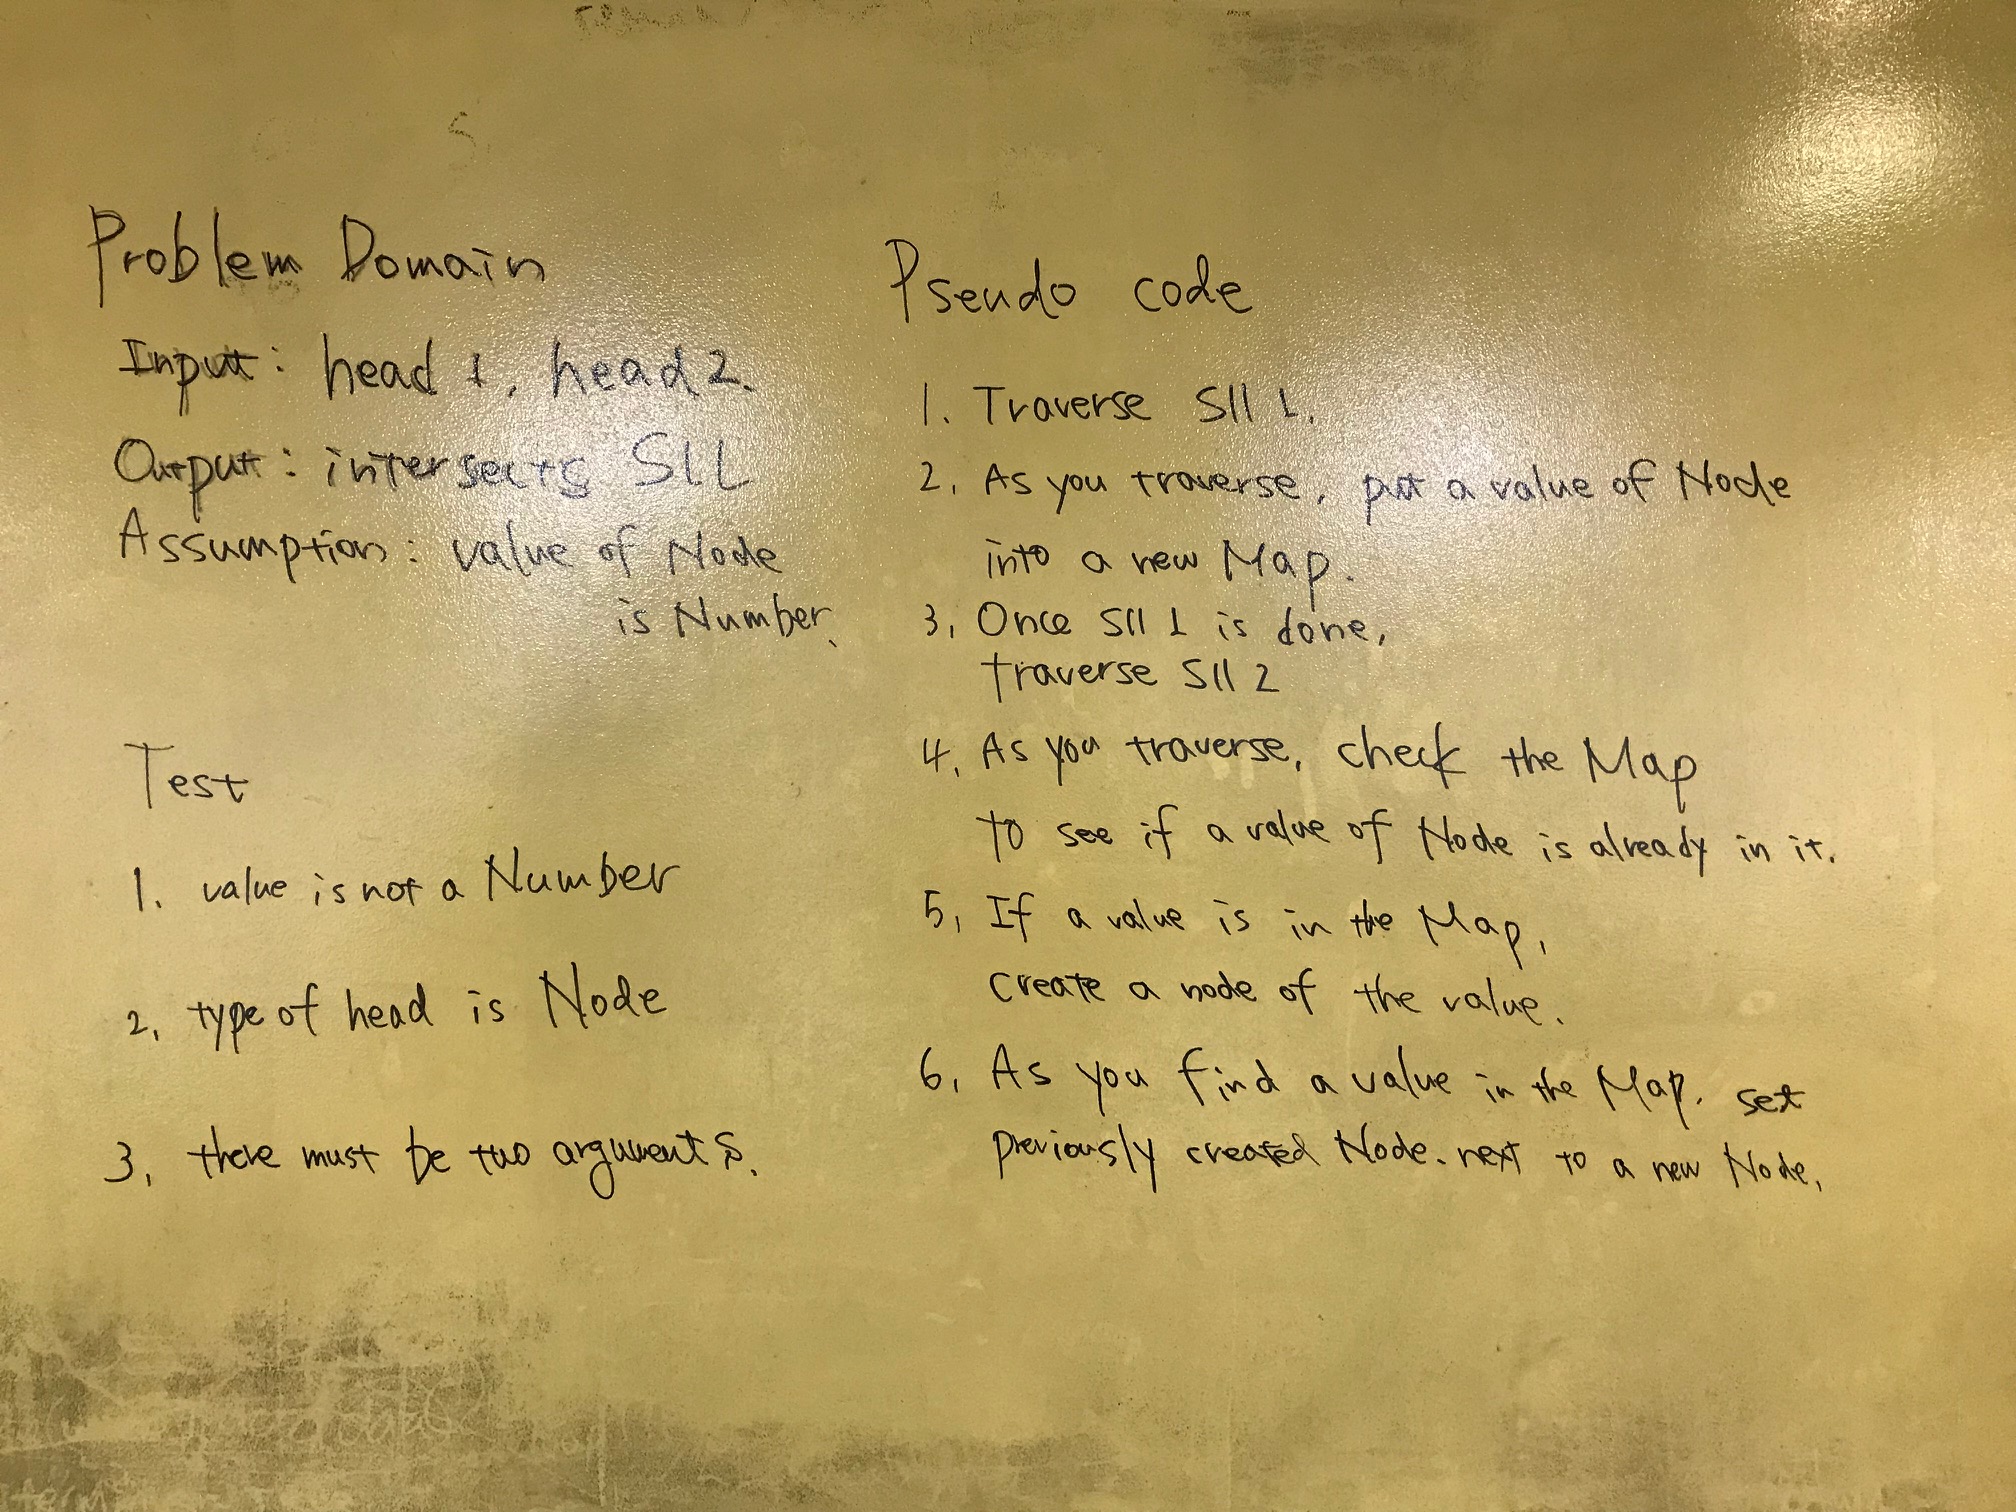 Problem Domain
Input: head 1, head 2.
Output: intersects SLL
Assumption: value of Node
is Number.
Test
1. value is not a Number
2. type of head is Node
3. there must be two arguments.
Pseudo code
1. Traverse Sll 1.
2. As you traverse, put a value of Node
into a new Map.
3. Once Sll 1 is done,
traverse Sll 2
4. As you traverse, check the Map
to see if a value of Node is already in it.
5. If a value is in the Map,
create a node of the value.
6. As you find a value in the Map, set
previously created Node.next to a new Node.